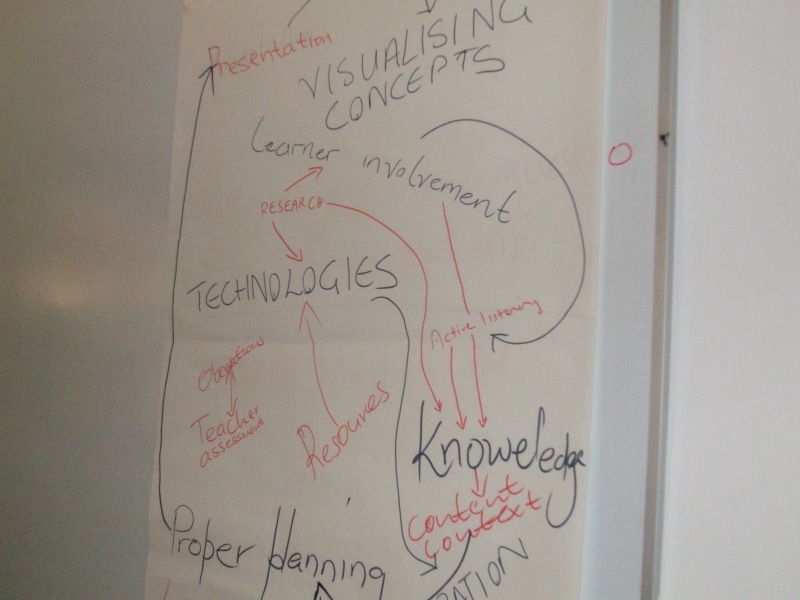 Presentation
VISUALISING
CONCEPTS
Learner involvement
RESEARCH
TECHNOLOGIES
Active listening
Teacher
assessment
Resources
Knoweledge
content
context
Proper planning
RATION